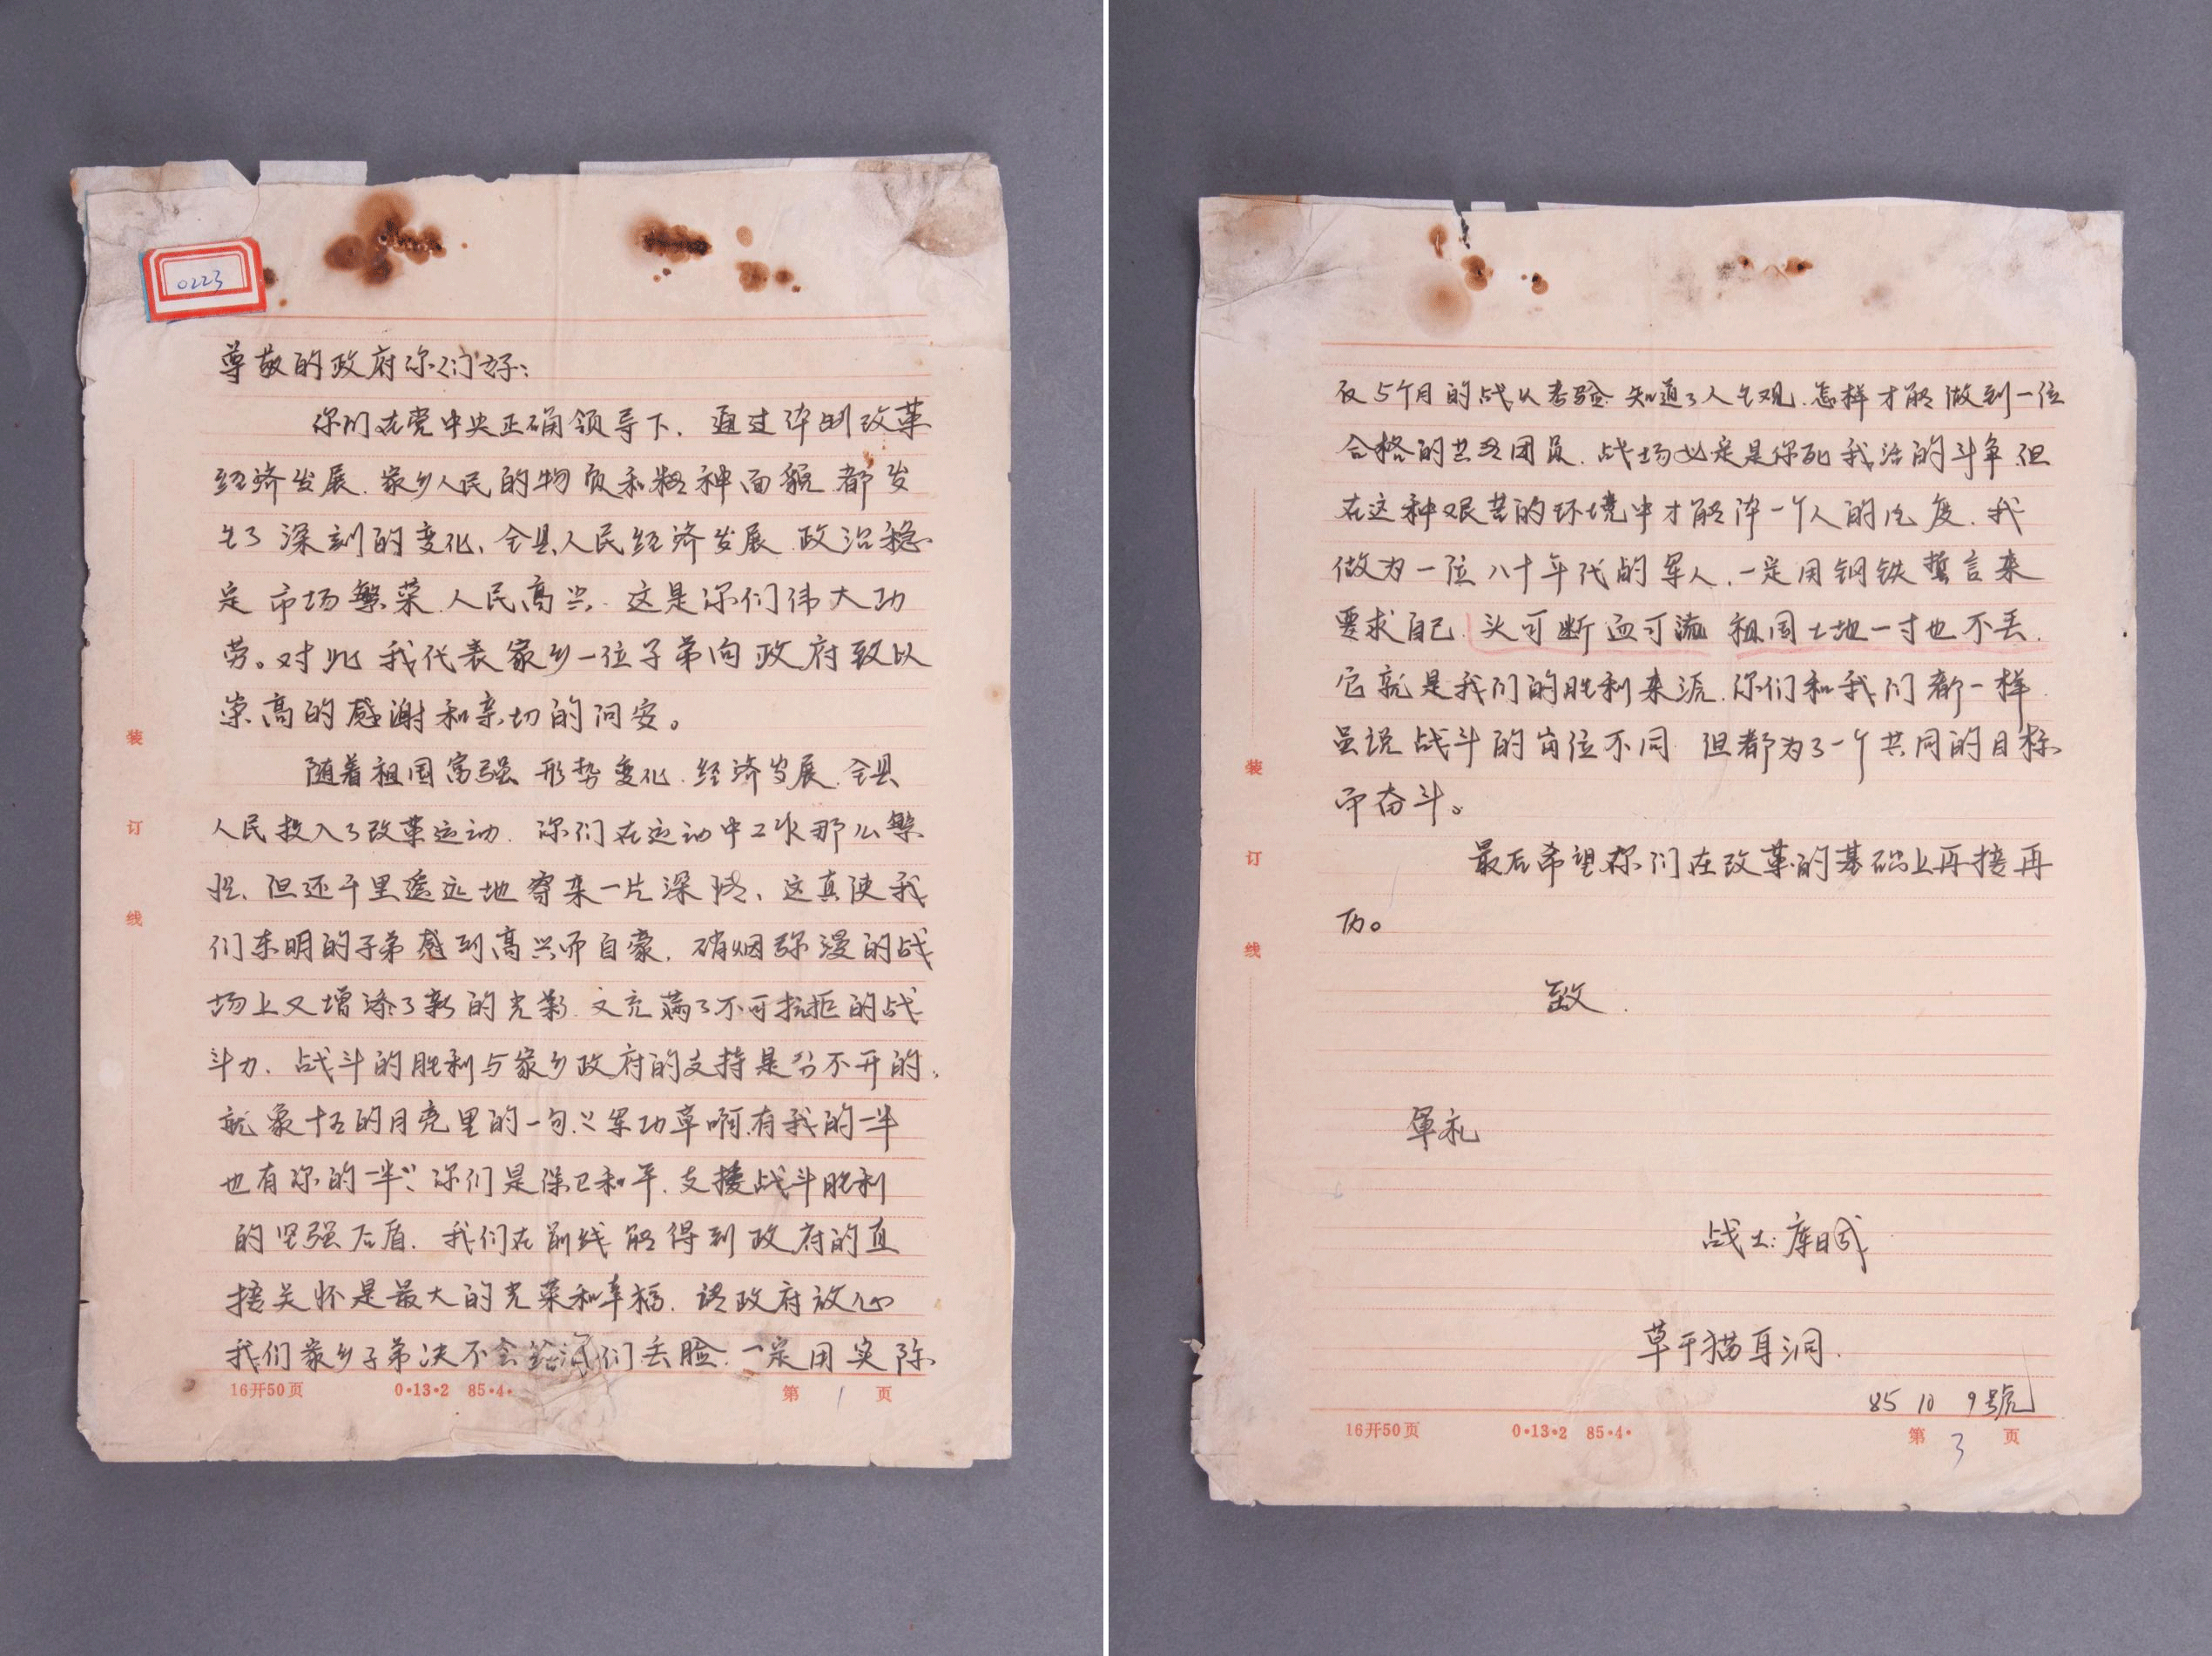 0223
尊敬的政府你们好：
你们在党中央正确领导下．通过体制改革
经济发展．家乡人民的物质和精神面貌都发
生了深刻的变化、全县人民经济发展．政治稳
定 市场繁荣．人民高兴．这是你们伟大功
劳。对此 我代表家乡一位子弟向政府致以
崇高的感谢和亲切的问安。
随着祖国富强 形势变化．经济发展．全县
人民投入了改革运动．你们在运动中工作那么繁
忙．但还千里遥远地寄来一片深情、这真使我
们东明的子弟感到高兴而自豪．硝烟弥漫的战
场上又增添了新的光彩．又充满了不可抗拒的战
斗力．战斗的胜利与家乡政府的支持是分不开的．
就象十五的月亮里的一句“军功章啊．有我的一半
也有你的一半”你们是保卫和平．支援战斗胜利
的坚强后盾．我们在前线能得到政府的直
接关怀是最大的光荣和幸福．请政府放心
我们家乡子弟决不会给你们丢脸．一定用实际
装
订
线
16开50页 0·13·2 85·4· 第 1 页
仅5个月的战火考验．知道了人生观．怎样才能做到一位
合格的共产团员．战场必定是你死我活的斗争．但
在这种艰苦的环境中才能体一个人的风度．我
做为一位八十年代的军人．一定用钢铁誓言来
要求自己．头可断血可流 祖国土地一寸也不丢．
它就是我们的胜利来源．你们和我们都一样
虽说战斗的岗位不同 但都为了一个共同的目标
而奋斗。
最后希望你们在改革的基础上再接再
历。
致．
军礼
战士：库
草于猫耳洞．
85 10 9号
装
订
线
16开50页 0·13·2 85·4· 第 3 页